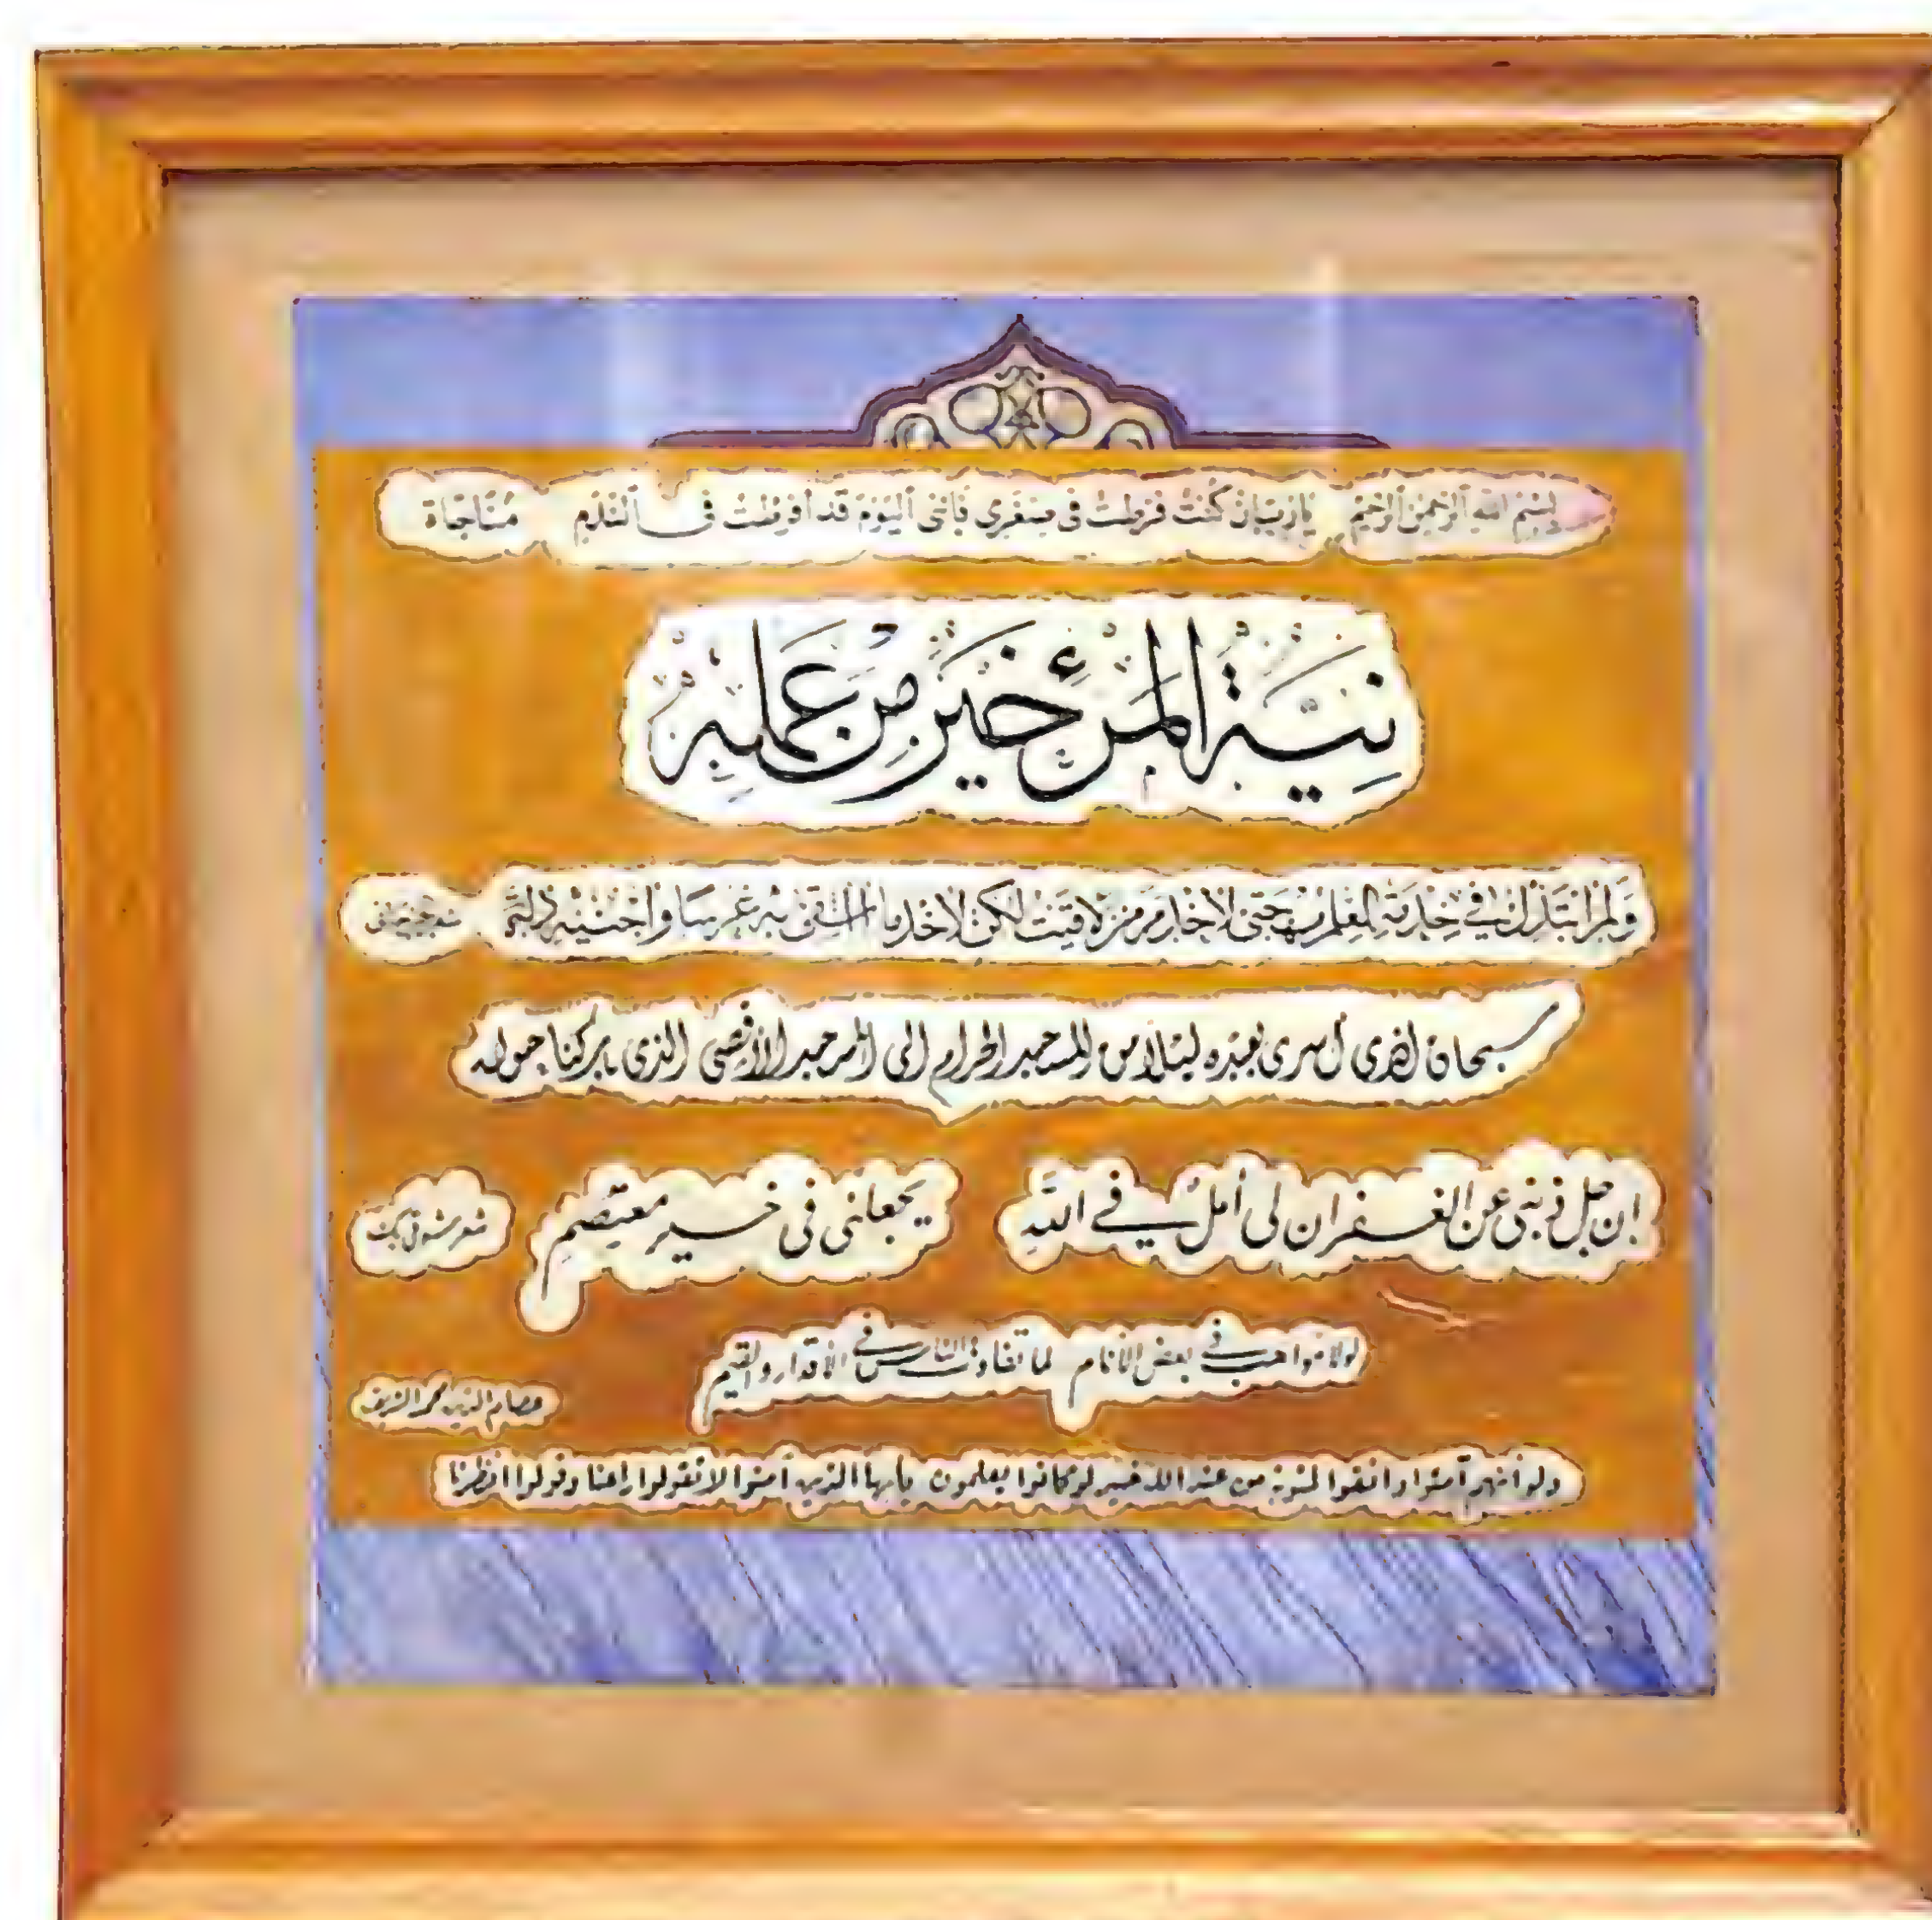 بسم الله الرحمن الرحيم يا رب إن كنت فرطت في صغري فإنني اليوم قد أفرطت في الندم مناجاة
نية المرئ خير من عمله
ولم ابتذل في خدمة العلم مهجتي لأخدم من لاقيت لكن لأخدما غرسا وأجنيه ذلة
سبحان الذي أسرى بعبده ليلا من المسجد الحرام إلى المسجد الأقصى الذي باركنا حوله
إن جل ذنبي عن الغفران لي أمل في الله يجعلني في خير معتصم شعر شوقي بك
لولا مواهب في بعض الأنام لما تفاوت الناس في الأقدار والقيم
عصام الدين محمد الشريف
ولو أنهم آمنوا واتقوا لمثوبة من عند الله خير لو كانوا يعلمون يا أيها الذين آمنوا لا تقولوا راعنا وقولوا انظرنا